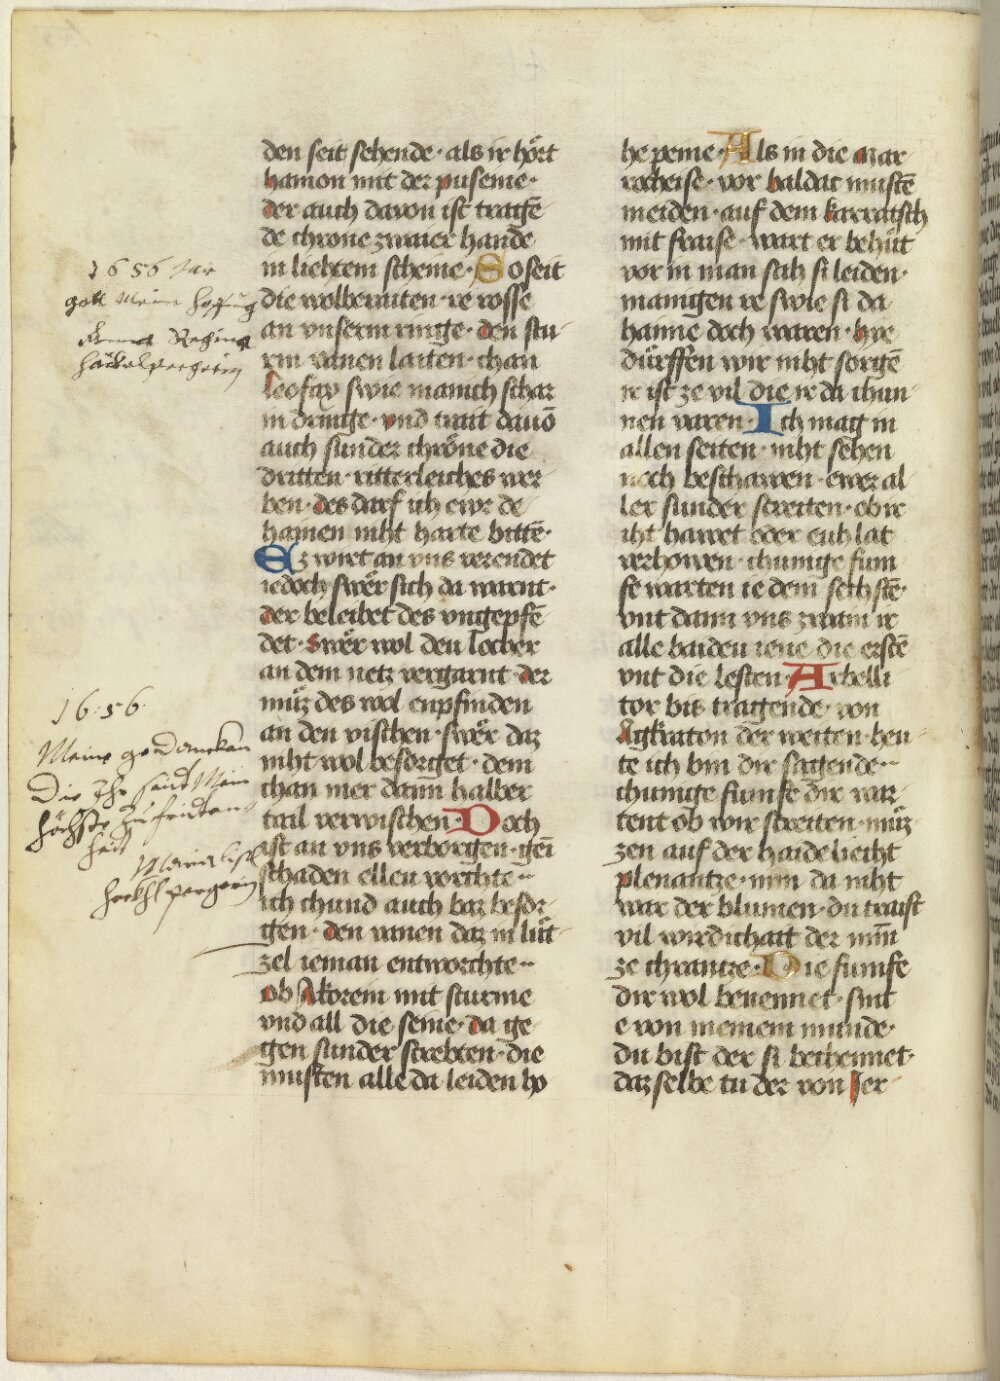 den seit sehende· als ir hört
hamon mit der puseme·
der auch davon ist tragē
de chrone zwaier hande
in liehtem scheine· So seit
die wolbewiten· re rosse
an vnserm ringe· den stu
rm vanen laiten· chan
Leofar swie manich schar
in dringe· vnd trait dauō
auch sunder chröne die
dritten· ritterleiches wer
ben· des darf ich ewr de
hainen niht harte bittē·
Ez wirt an vns verendet
iedoch swer sich da warnt·
der beleibet des vngepfē
det· Swer wol den locher
an dem netz vergarnt der
müz des wol enpfinden
an den vischen· swer daz
niht wol besorget· dem
chan mer dann halber
tail verwischen· Doch
ist an vns verborgen· gen
schaden ellen vorchte··
ich chund auch baz besor
gen· den vanen daz in lüt
zel ieman entworchte··
ob Akorein mit sturme
vnd all die seine· da ge
gen sunder strebten· die
musten alle da leiden ho
he peine· Als in die Mar
rocheise· vor baldac mustē
meiden· auf dem karratsch
mit fraise· wart er behütt
vor in man sach si leiden·
manigen re swie si da
hainne doch waren· hye
dürffen wir niht sorgē
ir ist ze vil die ir da chun
nen varen· Ich mag in
allen seiten· niht sehen
noch beschawen· ewer al
ler sunder streiten· ob ir
iht hawet oder euch lat
verhowen· chunige fum
fe warten ie dem sechstē·
vnt dann vns zwain ir
alle baiden iene die erstē
vnt die lesten· Arbelli
tor bis tragende· von
Agkraton der weiten· heu
te ich bin dir sagende··
chunige fumfe dir war
tent ob wir streiten· müz
zen auf der haide lieiht
plenantze· nim da niht
war der blumen· du traist
vil wirdichait der minn
ze chrantze· Die fumfe
dir wol benennet· sint
e von meinem munde·
du bist der si bechennet·
daz selbe tu der von Jer
1656 Jar
gott Meine Hoffnug
Regina
1656·
Meine gedancken
Die
höchste Zufriden
heit
Maria